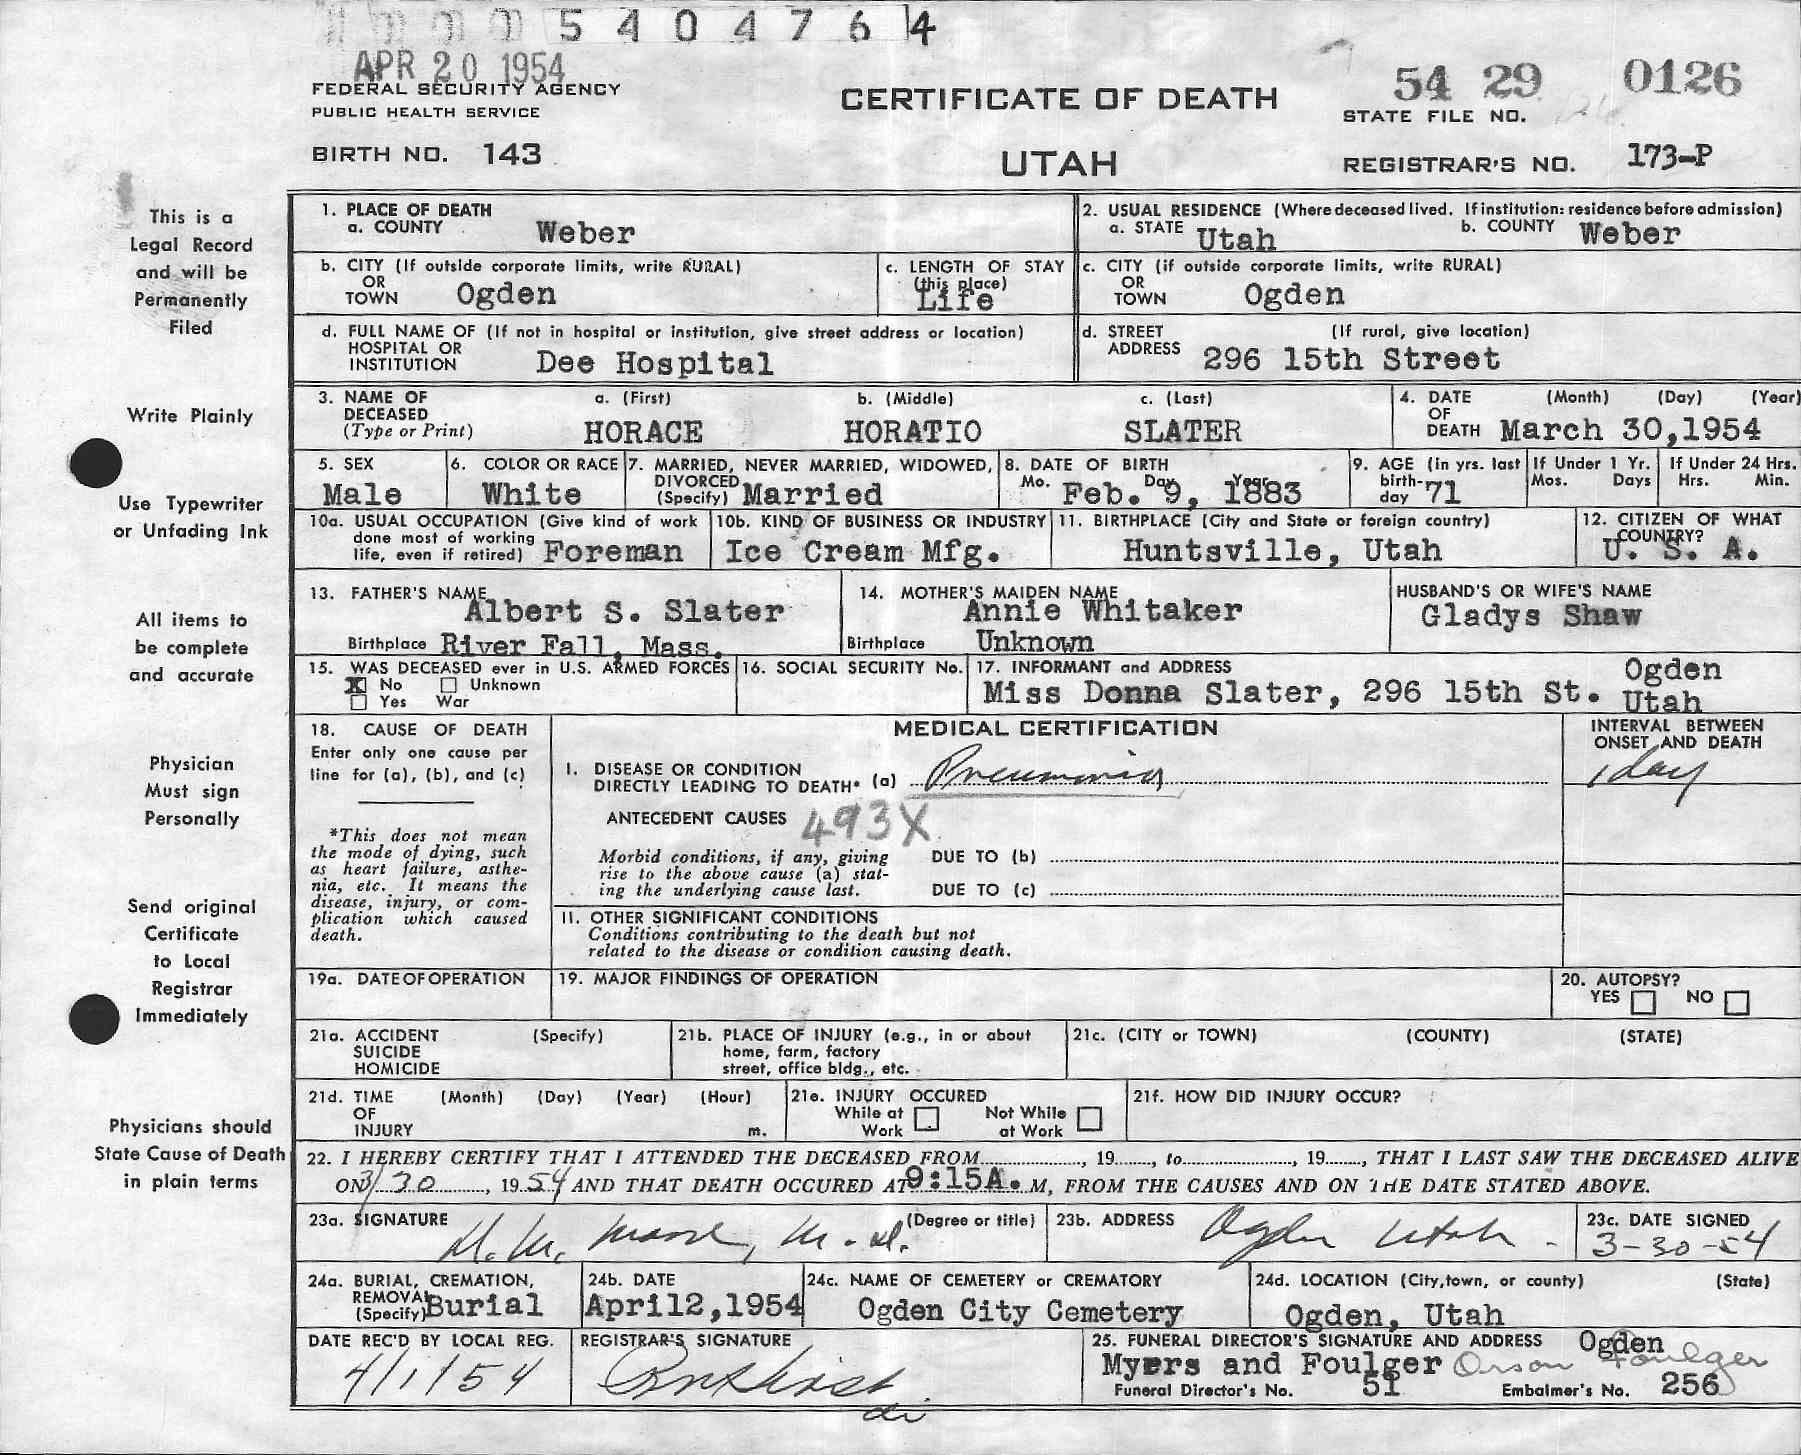 5 4 0 4 7 6 4
APR 20 1954
FEDERAL SECURITY AGENCY
PUBLIC HEALTH SERVICE
BIRTH NO. 143
CERTIFICATE OF DEATH
UTAH
54 29 0126
STATE FILE NO.
REGISTRAR'S NO. 173-P
This is a
Legal Record
and will be
Permanently
Filed
Write Plainly
Use Typewriter
or Unfading Ink
All items to
be complete
and accurate
Physician
Must sign
Personally
Send original
Certificate
to Local
Registrar
Immediately
Physicians should
State Cause of Death
in plain terms
1. PLACE OF DEATH
a. COUNTY Weber
2. USUAL RESIDENCE (Where deceased lived. If institution: residence before admission)
a. STATE Utah b. COUNTY Weber
b. CITY (If outside corporate limits, write RURAL)
OR
TOWN Ogden
c. LENGTH OF STAY
(this place)
Life
c. CITY (if outside corporate limits, write RURAL)
OR
TOWN Ogden
d. FULL NAME OF (If not in hospital or institution, give street address or location)
HOSPITAL OR
INSTITUTION Dee Hospital
d. STREET (If rural, give location)
ADDRESS 296 15th Street
3. NAME OF a. (First) b. (Middle) c. (Last)
DECEASED
(Type or Print) HORACE HORATIO SLATER
4. DATE (Month) (Day) (Year)
OF
DEATH March 30,1954
5. SEX
Male
6. COLOR OR RACE
White
7. MARRIED, NEVER MARRIED, WIDOWED,
DIVORCED
(Specify) Married
8. DATE OF BIRTH
Mo. Day Year
Feb. 9, 1883
9. AGE (in yrs. last
birth-
day 71
If Under 1 Yr.
Mos. Days
If Under 24 Hrs.
Hrs. Min.
10a. USUAL OCCUPATION (Give kind of work
done most of working
life, even if retired) Foreman
10b. KIND OF BUSINESS OR INDUSTRY
Ice Cream Mfg.
11. BIRTHPLACE (City and State or foreign country)
Huntsville, Utah
12. CITIZEN OF WHAT
COUNTRY?
U. S. A.
13. FATHER'S NAME
Albert S. Slater
Birthplace River Fall, Mass.
14. MOTHER'S MAIDEN NAME
Annie Whitaker
Birthplace Unknown
HUSBAND'S OR WIFE'S NAME
Gladys Shaw
15. WAS DECEASED ever in U.S. ARMED FORCES
X No Unknown
Yes War
16. SOCIAL SECURITY No.
17. INFORMANT and ADDRESS
Miss Donna Slater, 296 15th St. Ogden
Utah
18. CAUSE OF DEATH
Enter only one cause per
line for (a), (b), and (c)
*This does not mean
the mode of dying, such
as heart failure, asthe-
nia, etc. It means the
disease, injury, or com-
plication which caused
death.
MEDICAL CERTIFICATION
INTERVAL BETWEEN
ONSET AND DEATH
I. DISEASE OR CONDITION
DIRECTLY LEADING TO DEATH* (a) Pneumonia 1 day
ANTECEDENT CAUSES 493X
Morbid conditions, if any, giving
rise to the above cause (a) stat-
ing the underlying cause last.
DUE TO (b)
DUE TO (c)
II. OTHER SIGNIFICANT CONDITIONS
Conditions contributing to the death but not
related to the disease or condition causing death.
19a. DATE OF OPERATION
19. MAJOR FINDINGS OF OPERATION
20. AUTOPSY?
YES NO
21a. ACCIDENT (Specify)
SUICIDE
HOMICIDE
21b. PLACE OF INJURY (e.g., in or about
home, farm, factory
street, office bldg., etc.
21c. (CITY or TOWN) (COUNTY) (STATE)
21d. TIME (Month) (Day) (Year) (Hour)
OF
INJURY m.
21e. INJURY OCCURED
While at Work
Not While at Work
21f. HOW DID INJURY OCCUR?
22. I HEREBY CERTIFY THAT I ATTENDED THE DECEASED FROM, 19, to, 19, THAT I LAST SAW THE DECEASED ALIVE
ON 3/30, 1954 AND THAT DEATH OCCURED AT 9:15A. M, FROM THE CAUSES AND ON THE DATE STATED ABOVE.
23a. SIGNATURE (Degree or title)
M.D.
23b. ADDRESS Ogden Utah
23c. DATE SIGNED
3-30-54
24a. BURIAL, CREMATION,
REMOVAL
(Specify) Burial
24b. DATE
April2,1954
24c. NAME OF CEMETERY or CREMATORY
Ogden City Cemetery
24d. LOCATION (City,town, or county) (State)
Ogden, Utah
DATE REC'D BY LOCAL REG.
4/1/54
REGISTRAR'S SIGNATURE
25. FUNERAL DIRECTOR'S SIGNATURE AND ADDRESS Ogden
Myers and Foulger Orson Foulger
Funeral Director's No. 51 Embalmer's No. 256